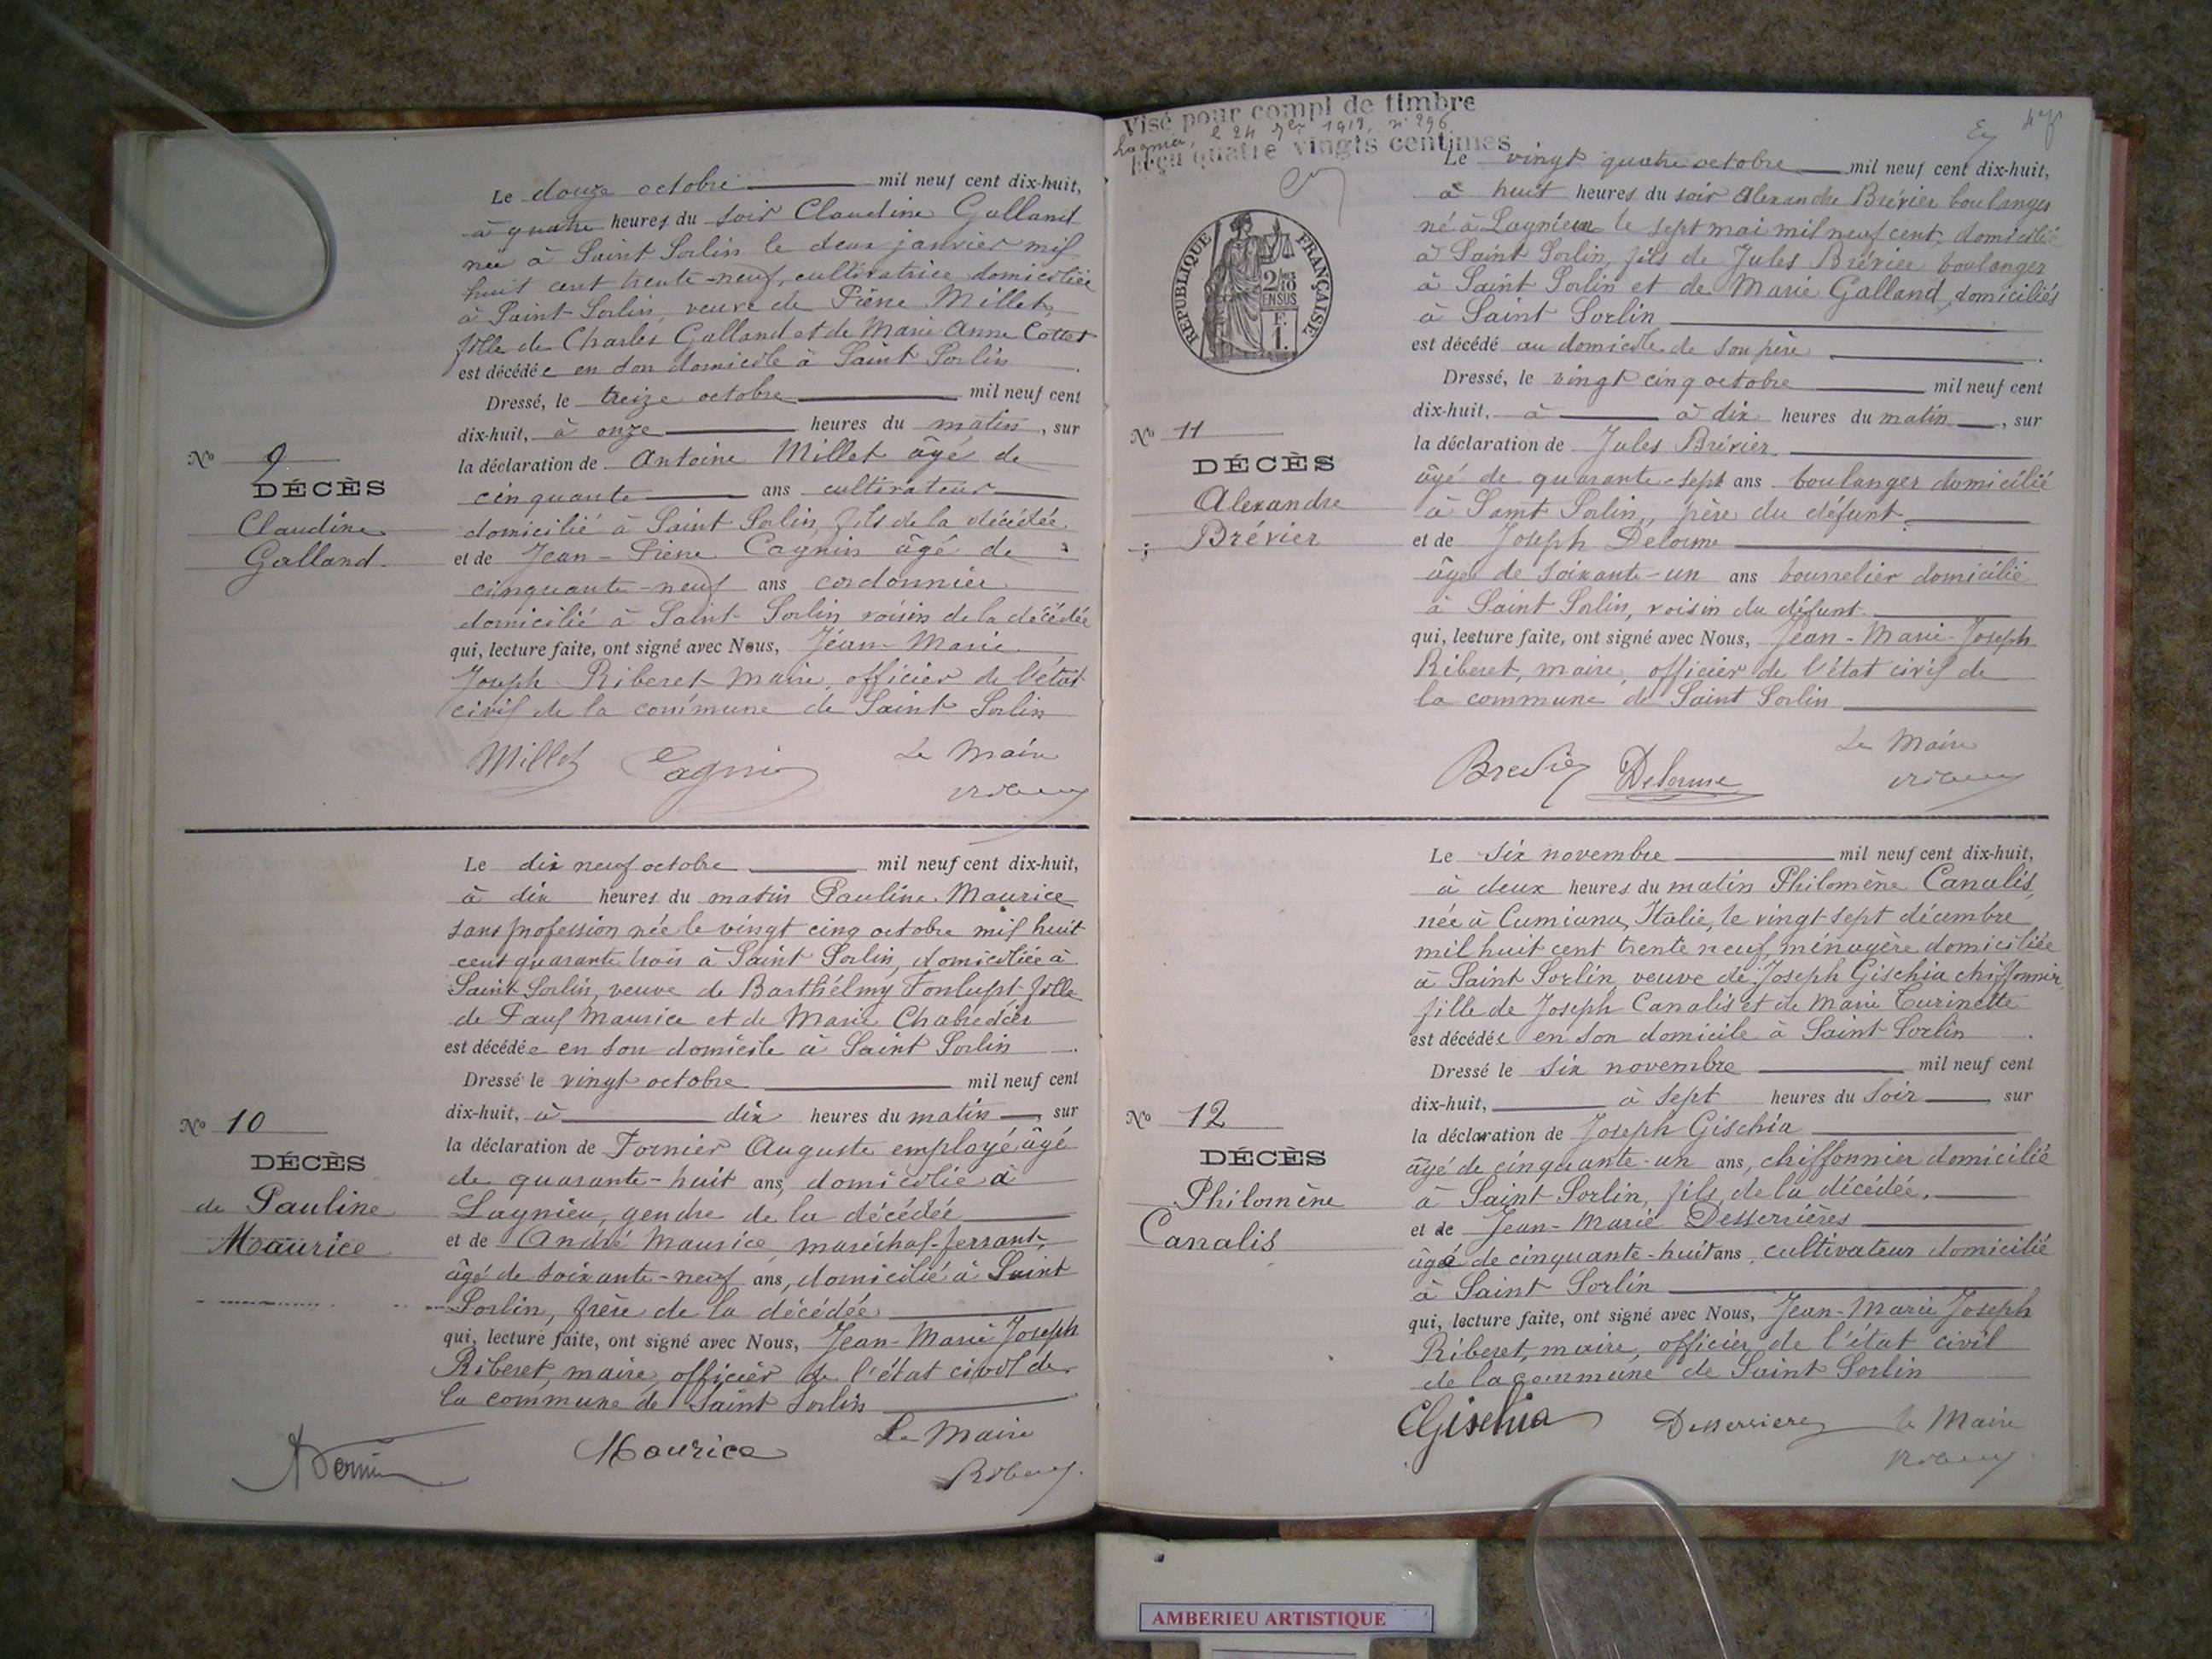 Le douze octobre mil neuf cent dix-huit,
à quatre heures du soir Claudine Galland
née à Saint Sorlin le deux janvier mil
huit cent trente-neuf, cultivatrice domiciliée
à Saint Sorlin, veuve de Pierre Millet,
fille de Charles Galland et de Marie Anne Cottet
est décédée en son domicile à Saint Sorlin
Dressé, le treize octobre mil neuf cent
dix-huit, à onze heures du matin, sur
la déclaration de Antoine Millet âgé de
cinquante ans cultivateur
domicilié à Saint Sorlin, fils de la décédée
et de Jean-Pierre Cagnin âgé de
cinquante-neuf ans cordonnier
domicilié à Saint Sorlin voisin de la décédée
qui, lecture faite, ont signé avec Nous, Jean-Marie
Joseph Riberet maire, officier de l'état
civil de la commune de Saint Sorlin
Millet Cagnin Le Maire
No 9
DÉCÈS
Claudine
Galland
Le dix neuf octobre mil neuf cent dix-huit,
à dix heures du matin Pauline Maurice
sans profession née le vingt cinq octobre mil huit
cent quarante trois à Saint Sorlin, domiciliée à
Saint Sorlin, veuve de Barthélmy Fonlupt fille
de Paul Maurice et de Marie
est décédée en son domicile à Saint Sorlin
Dressé le vingt octobre mil neuf cent
dix-huit, à dix heures du matin, sur
la déclaration de Fornier Auguste employé âgé
de quarante-huit ans, domicilié à
Lagnieu, gendre de la décédée
et de André Maurice, maréchal-ferrant,
âgé de soixante-neuf ans, domicilié à Saint
Sorlin, frère de la décédée
qui, lecture faite, ont signé avec Nous, Jean-Marie Joseph
Riberet, maire, officier de l'état civil de
la commune de Saint Sorlin
Maurice Le Maire
No 10
DÉCÈS
de Pauline
Maurice
Visé pour compl de timbre
Lagnieu, le 24 1918, n° 296
Reçu quatre vingts centimes
RÉPUBLIQUE FRANÇAISE
2/10
EN SUS
F.
1.
Le vingt quatre octobre mil neuf cent dix-huit,
à huit heures du soir Alexandre Brévier boulanger
né à Lagnieu le sept mai mil neuf cent, domicilié
à Saint Sorlin, fils de Jules Brévier boulanger
à Saint Sorlin et de Marie Galland, domiciliés
à Saint Sorlin
est décédé au domicile de son père
Dressé, le vingt cinq octobre mil neuf cent
dix-huit, à à dix heures du matin, sur
la déclaration de Jules Brévier
âgé de quarante-sept ans boulanger domicilié
à Saint Sorlin, père du défunt
et de Joseph Delorme
âgé de soixante-un ans bourrelier domicilié
à Saint Sorlin, voisin du défunt
qui, lecture faite, ont signé avec Nous, Jean-Marie-Joseph
Riberet, maire, officier de l'état civil de
la commune de Saint Sorlin
Brevier Delorme Le Maire
No 11
DÉCÈS
Alexandre
Brévier
Le six novembre mil neuf cent dix-huit,
à deux heures du matin Philomène Canalis,
née à Cumiana, Italie, le vingt-sept décembre
mil huit cent trente neuf, ménagère domiciliée
à Saint Sorlin veuve de Joseph Gischia chiffonnier,
fille de Joseph Canalis et de Marie Turinette
est décédée en son domicile à Saint Sorlin
Dressé le six novembre mil neuf cent
dix-huit, à sept heures du soir, sur
la déclaration de Joseph Gischia
âgé de cinquante-un ans, chiffonnier domicilié
à Saint Sorlin, fils de la décédée,
et de Jean-Marie Desserrières
âgé de cinquante-huit ans, cultivateur domicilié
à Saint Sorlin
qui, lecture faite, ont signé avec Nous, Jean-Marie Joseph
Riberet, maire, officier de l'état civil
de la commune de Saint Sorlin
Gischia Desserrieres le Maire
No 12
DÉCÈS
Philomène
Canalis
AMBERIEU ARTISTIQUE